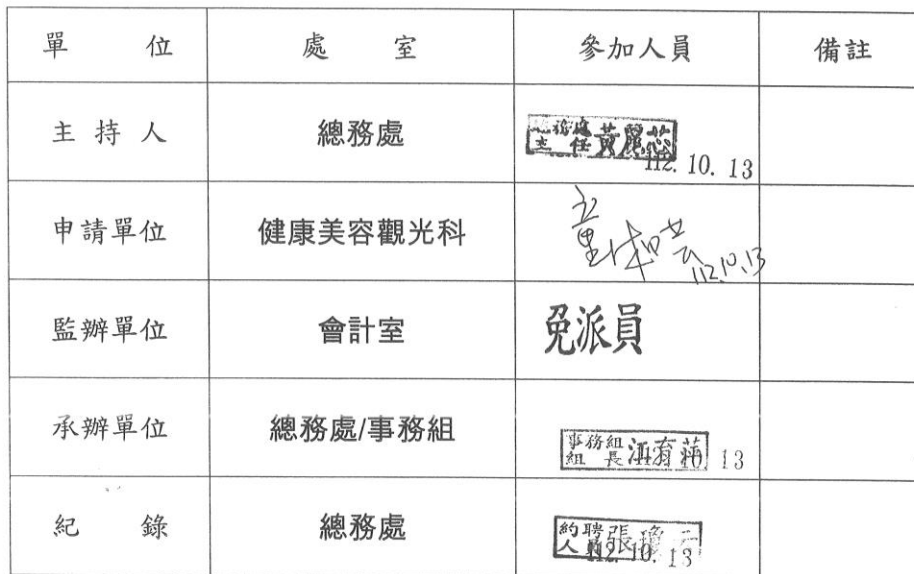 單 位 處 室 參加人員 備註
主 持 人 總務處 總務處
主 任 黃麗蕊
112. 10. 13
申請單位 健康美容觀光科 童
112.10.13
監辦單位 會計室 免派員
承辦單位 總務處/事務組 事務組
組 長 江育 10 13
紀 錄 總務處 約聘
人員 張 112.10.13